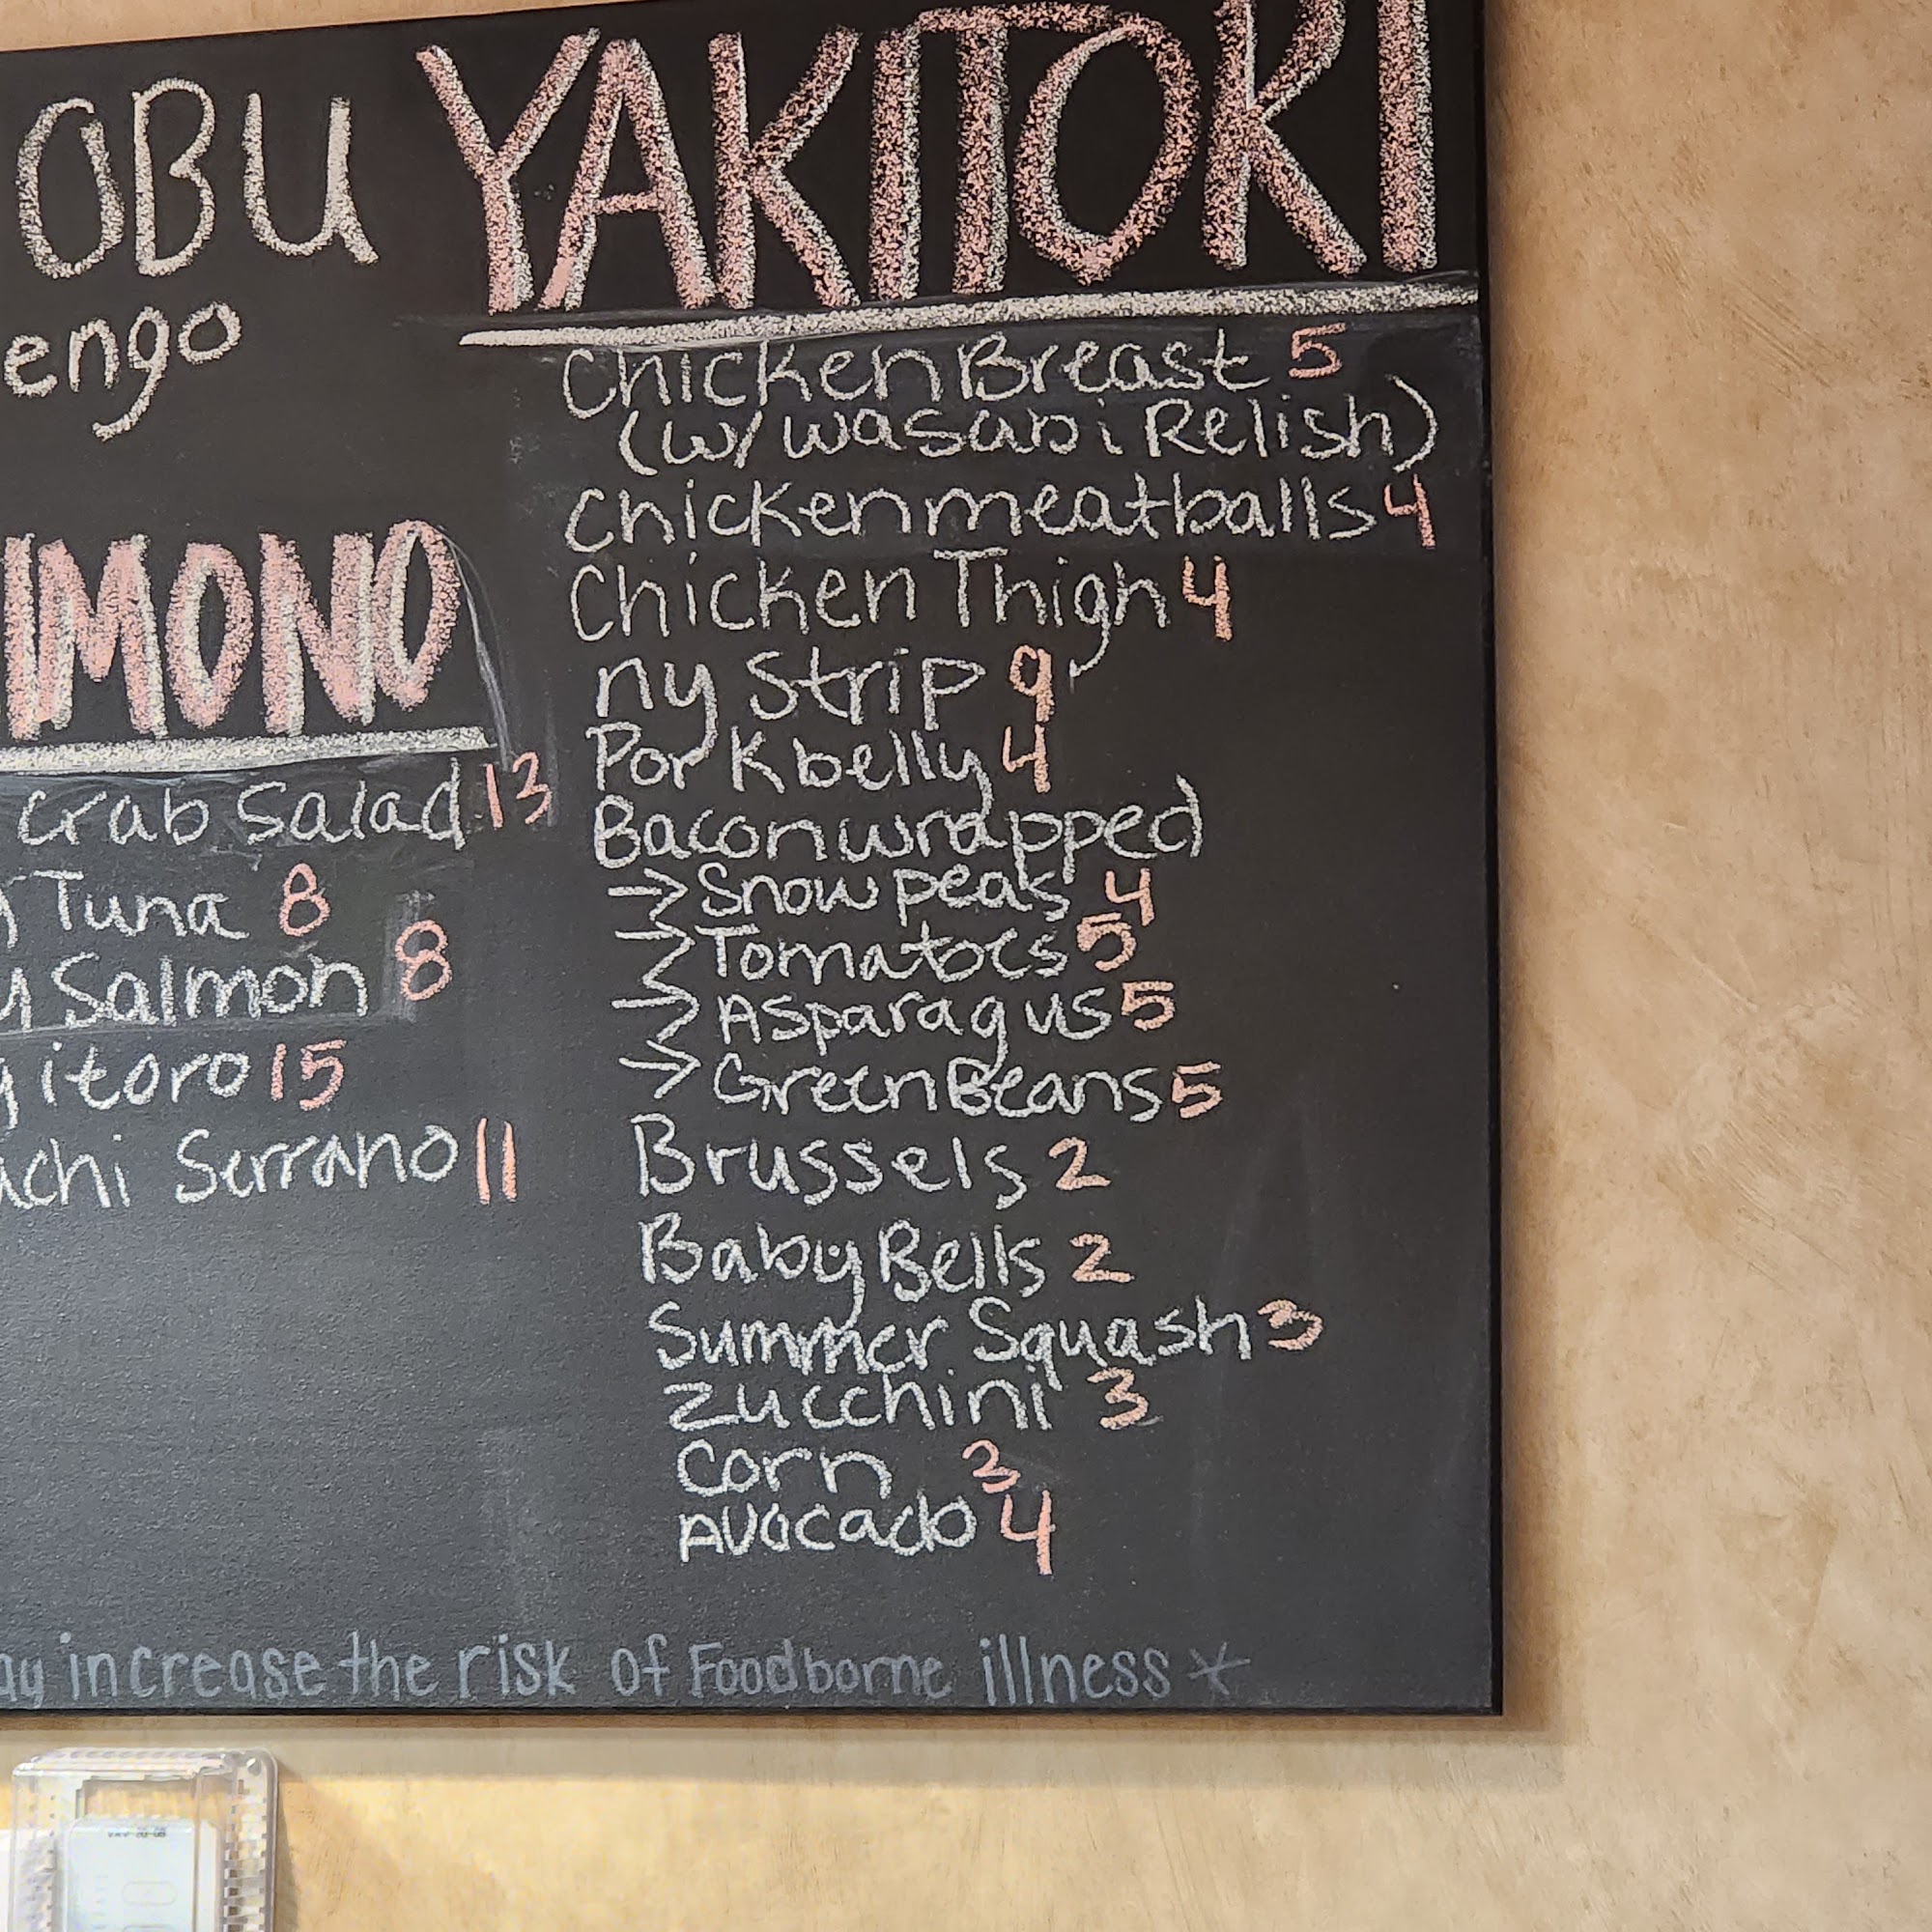 OBU
engo
IMONO
Crab Salad 13
Tuna 8
Salmon 8
itoro 15
achi Serrano 11
YAKITORI
Chicken Breast 5
(w/ wasabi Relish)
Chicken meatballs 4
Chicken Thigh 4
ny Strip 9
Pork belly 4
Bacon wrapped
→ Snow peas 4
→ Tomatoes 5
→ Asparagus 5
→ Green Beans 5
Brussels 2
Baby Bells 2
Summer Squash 3
Zucchini 3
Corn 3
Avocado 4
ay increase the risk of Foodborne illness *